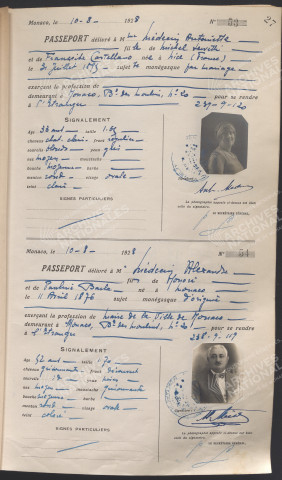 Monaco, 10-8- 1928 N° 53
PASSEPORT délivré à Mme Médecin Antoinette
fille de Michel
et de Françoise Castellano née à Nice (France)
le 30 Juillet sujette monégasque par mariage
exerçant la profession de
demeurant à Monaco, Bd des Moulins, No 20 pour se rendre
à l'Etranger 239-9-120
SIGNALEMENT
âge 36 ans taille 1.65
cheveux chat. clair front
sourcils blonds yeux gris
nez moyen moustache
bouche moyenne barbe
menton rond visage ovale
teint clair
SIGNES PARTICULIERS
La photographie apposée ci-dessus est bien
celle du signataire.
Monaco, 10-8- 1928 N° 54
PASSEPORT délivré à Mr Médecin Alexandre
fils de Honoré
et de Pauline né à Monaco
le 11 Avril 1876 sujet monégasque d'origine
exerçant la profession de Maire de la Ville de Monaco
demeurant à Monaco, Bd des Moulins, No 20 pour se rendre
à l'Etranger 238-9-119
SIGNALEMENT
âge 52 ans taille 1.70
cheveux grisonnants front découvert
sourcils id yeux
nez moyen moustache grisonnante
bouche moyenne barbe
menton rond visage ovale
teint coloré
SIGNES PARTICULIERS
La photographie apposée ci-dessus est bien
celle du signataire.